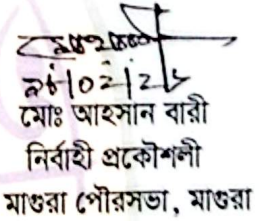 মোঃ আহসান বারী
নির্বাহী প্রকৌশলী
মাগুরা পৌরসভা, মাগুরা